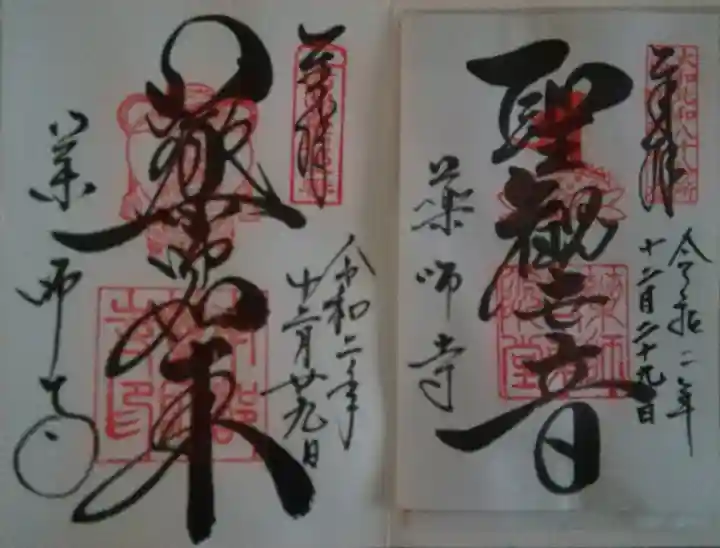 奉拝
薬師如来
令和二年
十二月廿九日
薬師寺
奉拝
聖観世音
令和二年
十二月二十九日
薬師寺